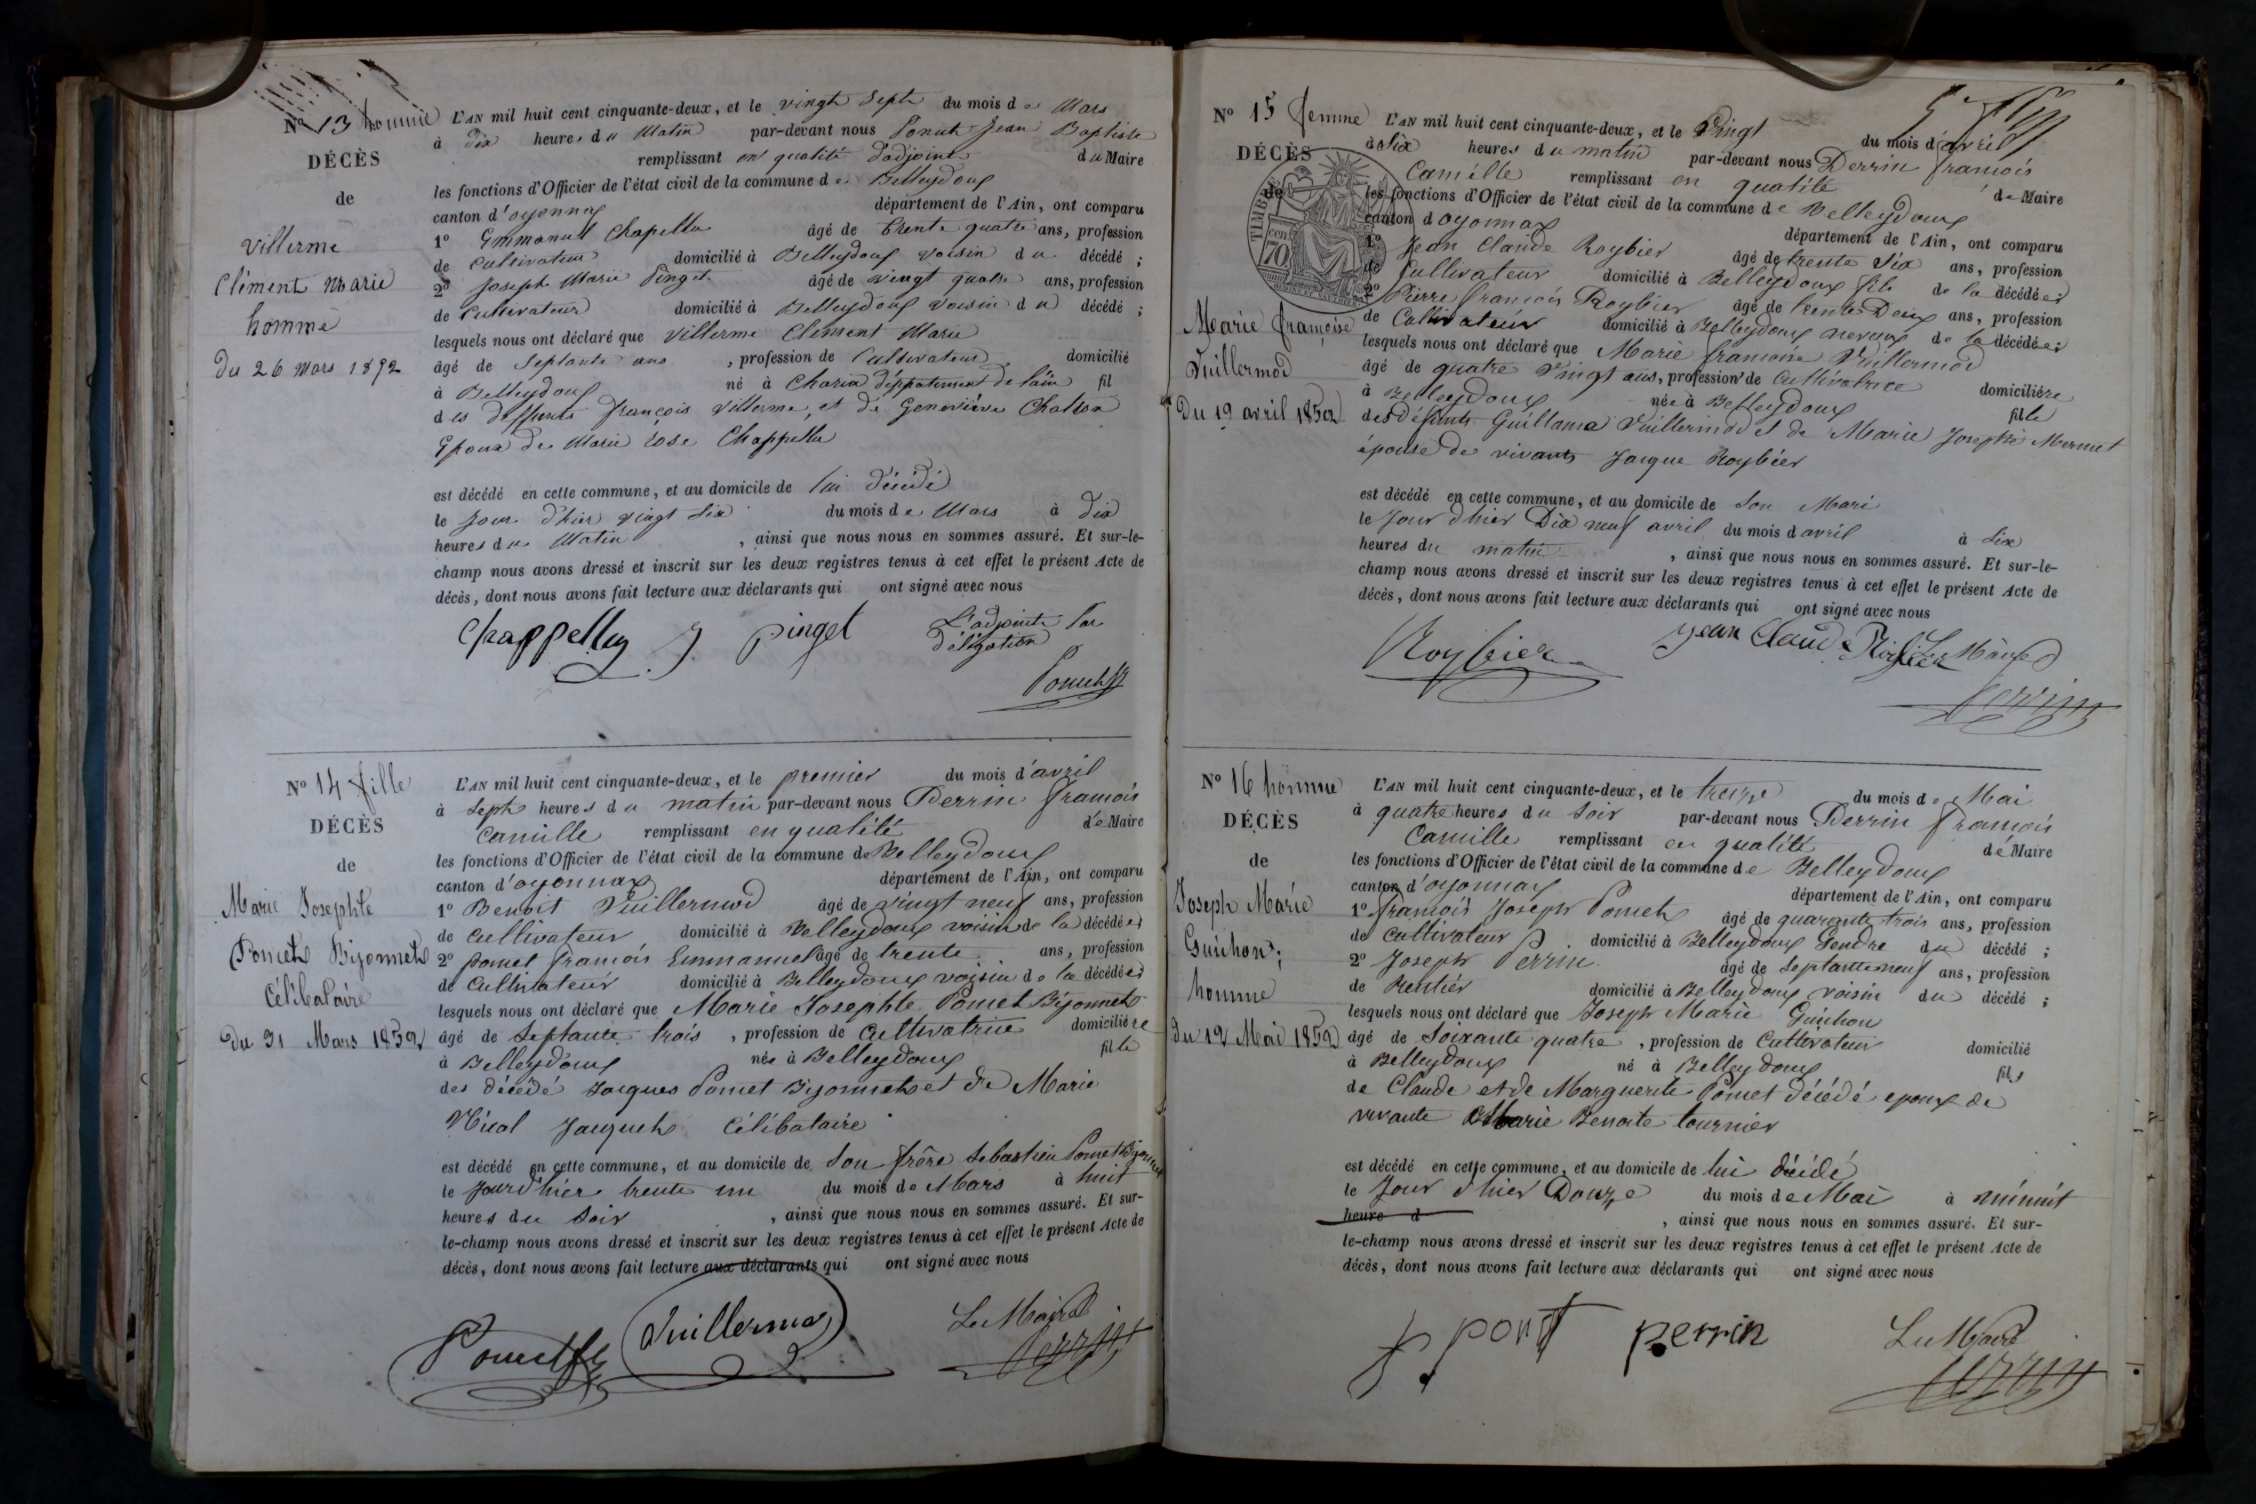 No 13 homme
DÉCÈS
de
Villerme
Clément Marie
homme
Du 26 Mars 1852
L'AN mil huit cent cinquante-deux, et le vingt Sept du mois de Mars
à dix heures du Matin par-devant nous Ponct Jean Baptiste
remplissant en qualité d'adjoint du Maire
les fonctions d'Officier de l'état civil de la commune de Belleydoux
canton d'oyonnax département de l'Ain, ont comparu
1º Emmanuel Chapellu âgé de trente quatre ans, profession
de Cultivateur domicilié à Belleydoux voisin du décédé ;
2º Joseph Marie Pinget âgé de vingt quatre ans, profession
de Cultivateur domicilié à Belleydoux voisin du décédé ;
lesquels nous ont déclaré que Villerme Clément Marie
âgé de Septante ans , profession de Cultivateur domicilié
à Belleydoux né à Charix département de l'ain fil
des deffunts françois Villerme, et de Geneviève Chatton
Epoux de Marie Rose Chappellu
est décédé en cette commune, et au domicile de lui décédé
le Jour d'hier vingt Six du mois de Mars à dix
heures du Matin , ainsi que nous nous en sommes assuré. Et sur-le-
champ nous avons dressé et inscrit sur les deux registres tenus à cet effet le présent Acte de
décès, dont nous avons fait lecture aux déclarants qui ont signé avec nous
Chappelluz J. pinget L'adjoint Par
délégation
Poncet
No 14 fille
DÉCÈS
de
Marie Josephte
Poncet Bijonnet
Célibataire
Du 31 Mars 1852
L'AN mil huit cent cinquante-deux, et le premier du mois d'avril
à Sept heures du matin par-devant nous Perrin françois
Camille remplissant en qualité de Maire
les fonctions d'Officier de l'état civil de la commune de Belleydoux
canton d'oyonnax département de l'Ain, ont comparu
1º Benoit Vuillermod âgé de vingt neuf ans, profession
de Cultivateur domicilié à Belleydoux voisin de la décédée
2º poncet françois Emmanuel âgé de trente ans, profession
de Cultivateur domicilié à Belleydoux voisin de la décédée
lesquels nous ont déclaré que Marie Josephte Poncet Bijonnet
âgé de Septante trois , profession de Cultivatrice domiciliére
à Belleydoux née à Belleydoux fille
des décédé Jacques Poncet Bijonnet et de Marie
Nicol Jacquet Célibataire
est décédé en cette commune, et au domicile de Son frère Sebastien Poncet Bijonnet
le Jour d'hier trente un du mois de Mars à huit
heures du Soir , ainsi que nous nous en sommes assuré. Et sur-
le-champ nous avons dressé et inscrit sur les deux registres tenus à cet effet le présent Acte de
décès, dont nous avons fait lecture aux déclarants qui ont signé avec nous
Poncet Vuillermod Le Maire
Perrin
No 15 femme
DÉCÈS
de
TIMBRE
70 cen
Marie françoise
Vuillermod
Du 19 avril 1852
L'AN mil huit cent cinquante-deux, et le Vingt du mois d'avril
à Six heures du matin par-devant nous Perrin françois
Camille remplissant en qualité de Maire
les fonctions d'Officier de l'état civil de la commune de Belleydoux
canton d'oyonnax département de l'Ain, ont comparu
1º Jean Claude Roybier âgé de trente Six ans, profession
de Cultivateur domicilié à Belleydoux fils de la décédée
2º Pierre françois Roybier âgé de trente Deux ans, profession
de Cultivateur domicilié à Belleydoux neveux de la décédée
lesquels nous ont déclaré que Marie francoise Vuillermod
âgé de quatre Vingt ans, profession de Cultivatrice domiciliére
à Belleydoux née à Belleydoux fille
des défunts Guillame Vuillermod et de Marie Josephte Mermet
épouse de vivant Jacque Roybier
est décédé en cette commune, et au domicile de Son Mari
le Jour d'hier Dix neuf avril du mois d'avril à Six
heures du matin , ainsi que nous nous en sommes assuré. Et sur-le-
champ nous avons dressé et inscrit sur les deux registres tenus à cet effet le présent Acte de
décès, dont nous avons fait lecture aux déclarants qui ont signé avec nous
Roybier Jean Claude Roybier Le Maire
Perrin
No 16 homme
DÉCÈS
de
Joseph Marie
Guichon
homme
du 12 Mai 1852
L'AN mil huit cent cinquante-deux, et le treize du mois de Mai
à quatre heures du Soir par-devant nous Perrin françois
Camille remplissant en qualité de Maire
les fonctions d'Officier de l'état civil de la commune de Belleydoux
canton d'oyonnax département de l'Ain, ont comparu
1º françois Joseph Poncet âgé de quarante trois ans, profession
de Cultivateur domicilié à Belleydoux Gendre du décédé ;
2º Joseph Perrin âgé de Septante neuf ans, profession
de Rentier domicilié à Belleydoux voisin du décédé ;
lesquels nous ont déclaré que Joseph Marie Guichon
âgé de Soixante quatre , profession de Cultivateur domicilié
à Belleydoux né à Belleydoux fils
de Claude et de Marguerite Poncet décédé epoux de
vivante Marie Benoite tournier
est décédé en cette commune, et au domicile de lui décédé
le Jour d'hier Douze du mois de Mai à minuit
heure d , ainsi que nous nous en sommes assuré. Et sur-
le-champ nous avons dressé et inscrit sur les deux registres tenus à cet effet le présent Acte de
décès, dont nous avons fait lecture aux déclarants qui ont signé avec nous
perrin Le Maire
Perrin